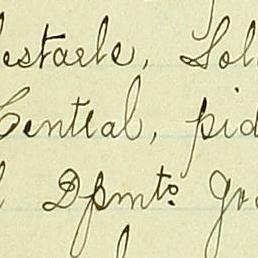 estacle, Sol
Central, pid
l Dpmto. Go